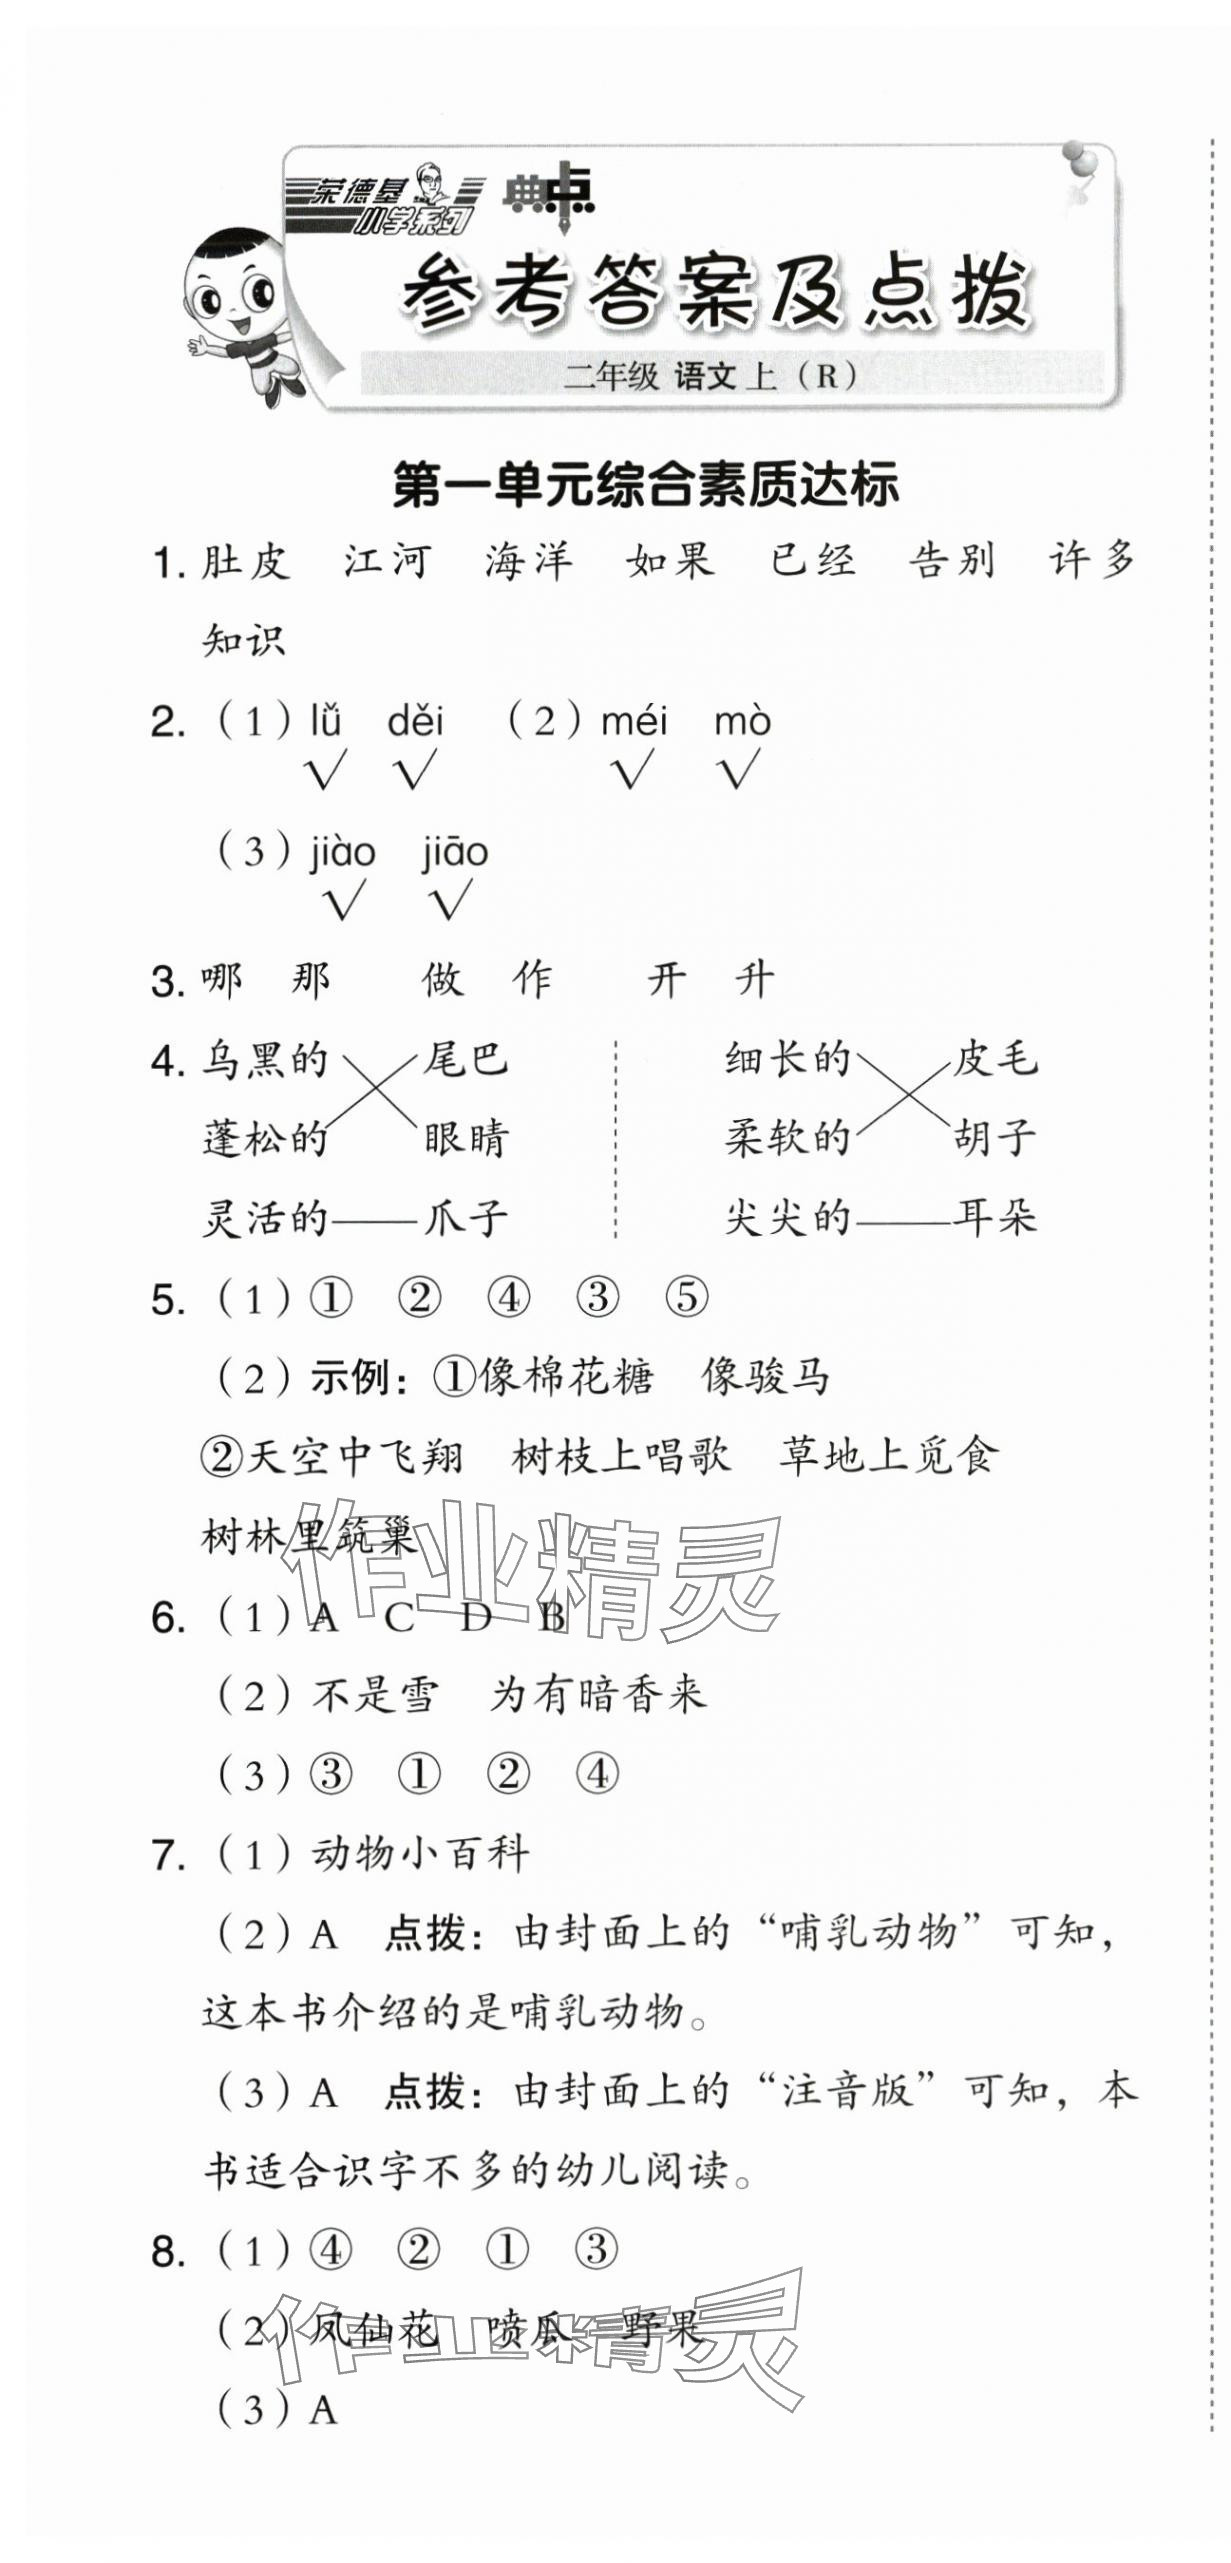 荣德基
小学系列
典点
参考答案及点拨
二年级 语文 上（R）
第一单元综合素质达标
1. 肚皮 江河 海洋 如果 已经 告别 许多
知识
2.（1）lǜ děi （2）méi mò
√ √ √ √
（3）jiào jiāo
√ √
3. 哪 那 做 作 开 升
4. 乌黑的 尾巴 细长的 皮毛
蓬松的 眼睛 柔软的 胡子
灵活的 爪子 尖尖的 耳朵
5.（1）① ② ④ ③ ⑤
（2）示例：①像棉花糖 像骏马
②天空中飞翔 树枝上唱歌 草地上觅食
树林里筑巢
作业精灵
6.（1）A C D B
（2）不是雪 为有暗香来
（3）③ ① ② ④
7.（1）动物小百科
（2）A 点拨：由封面上的“哺乳动物”可知，
这本书介绍的是哺乳动物。
（3）A 点拨：由封面上的“注音版”可知，本
书适合识字不多的幼儿阅读。
8.（1）④ ② ① ③
（2）凤仙花 喷瓜 野果
作业精灵
（3）A